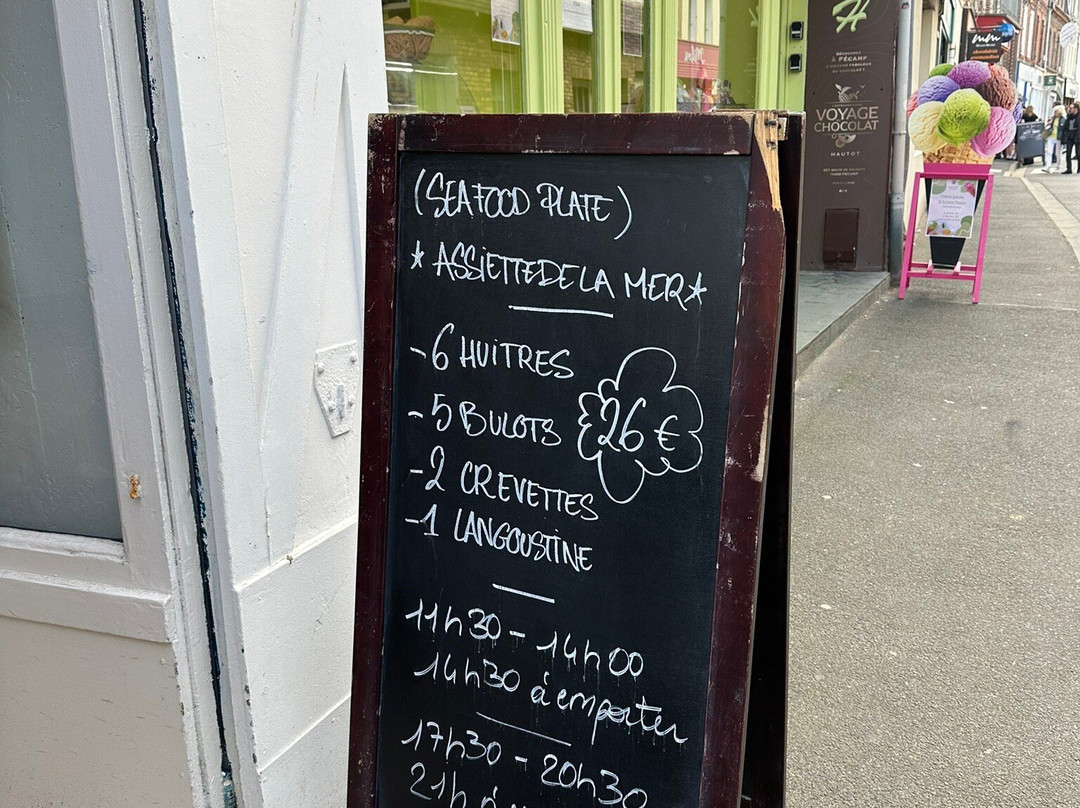 (SEAFOOD PLATE)
* ASSIETTE DE LA MER *
-6 HUiTRES
-5 BULOTS
26 €
-2 CREVETTES
-1 LANGOUSTiNE
11h30 - 14h00
14h30 à emporter
17h30 - 20h30
21h à
DÉCOUVREZ
À FÉCAMP
VOYAGE
CHOCOLAT
HAUTOT